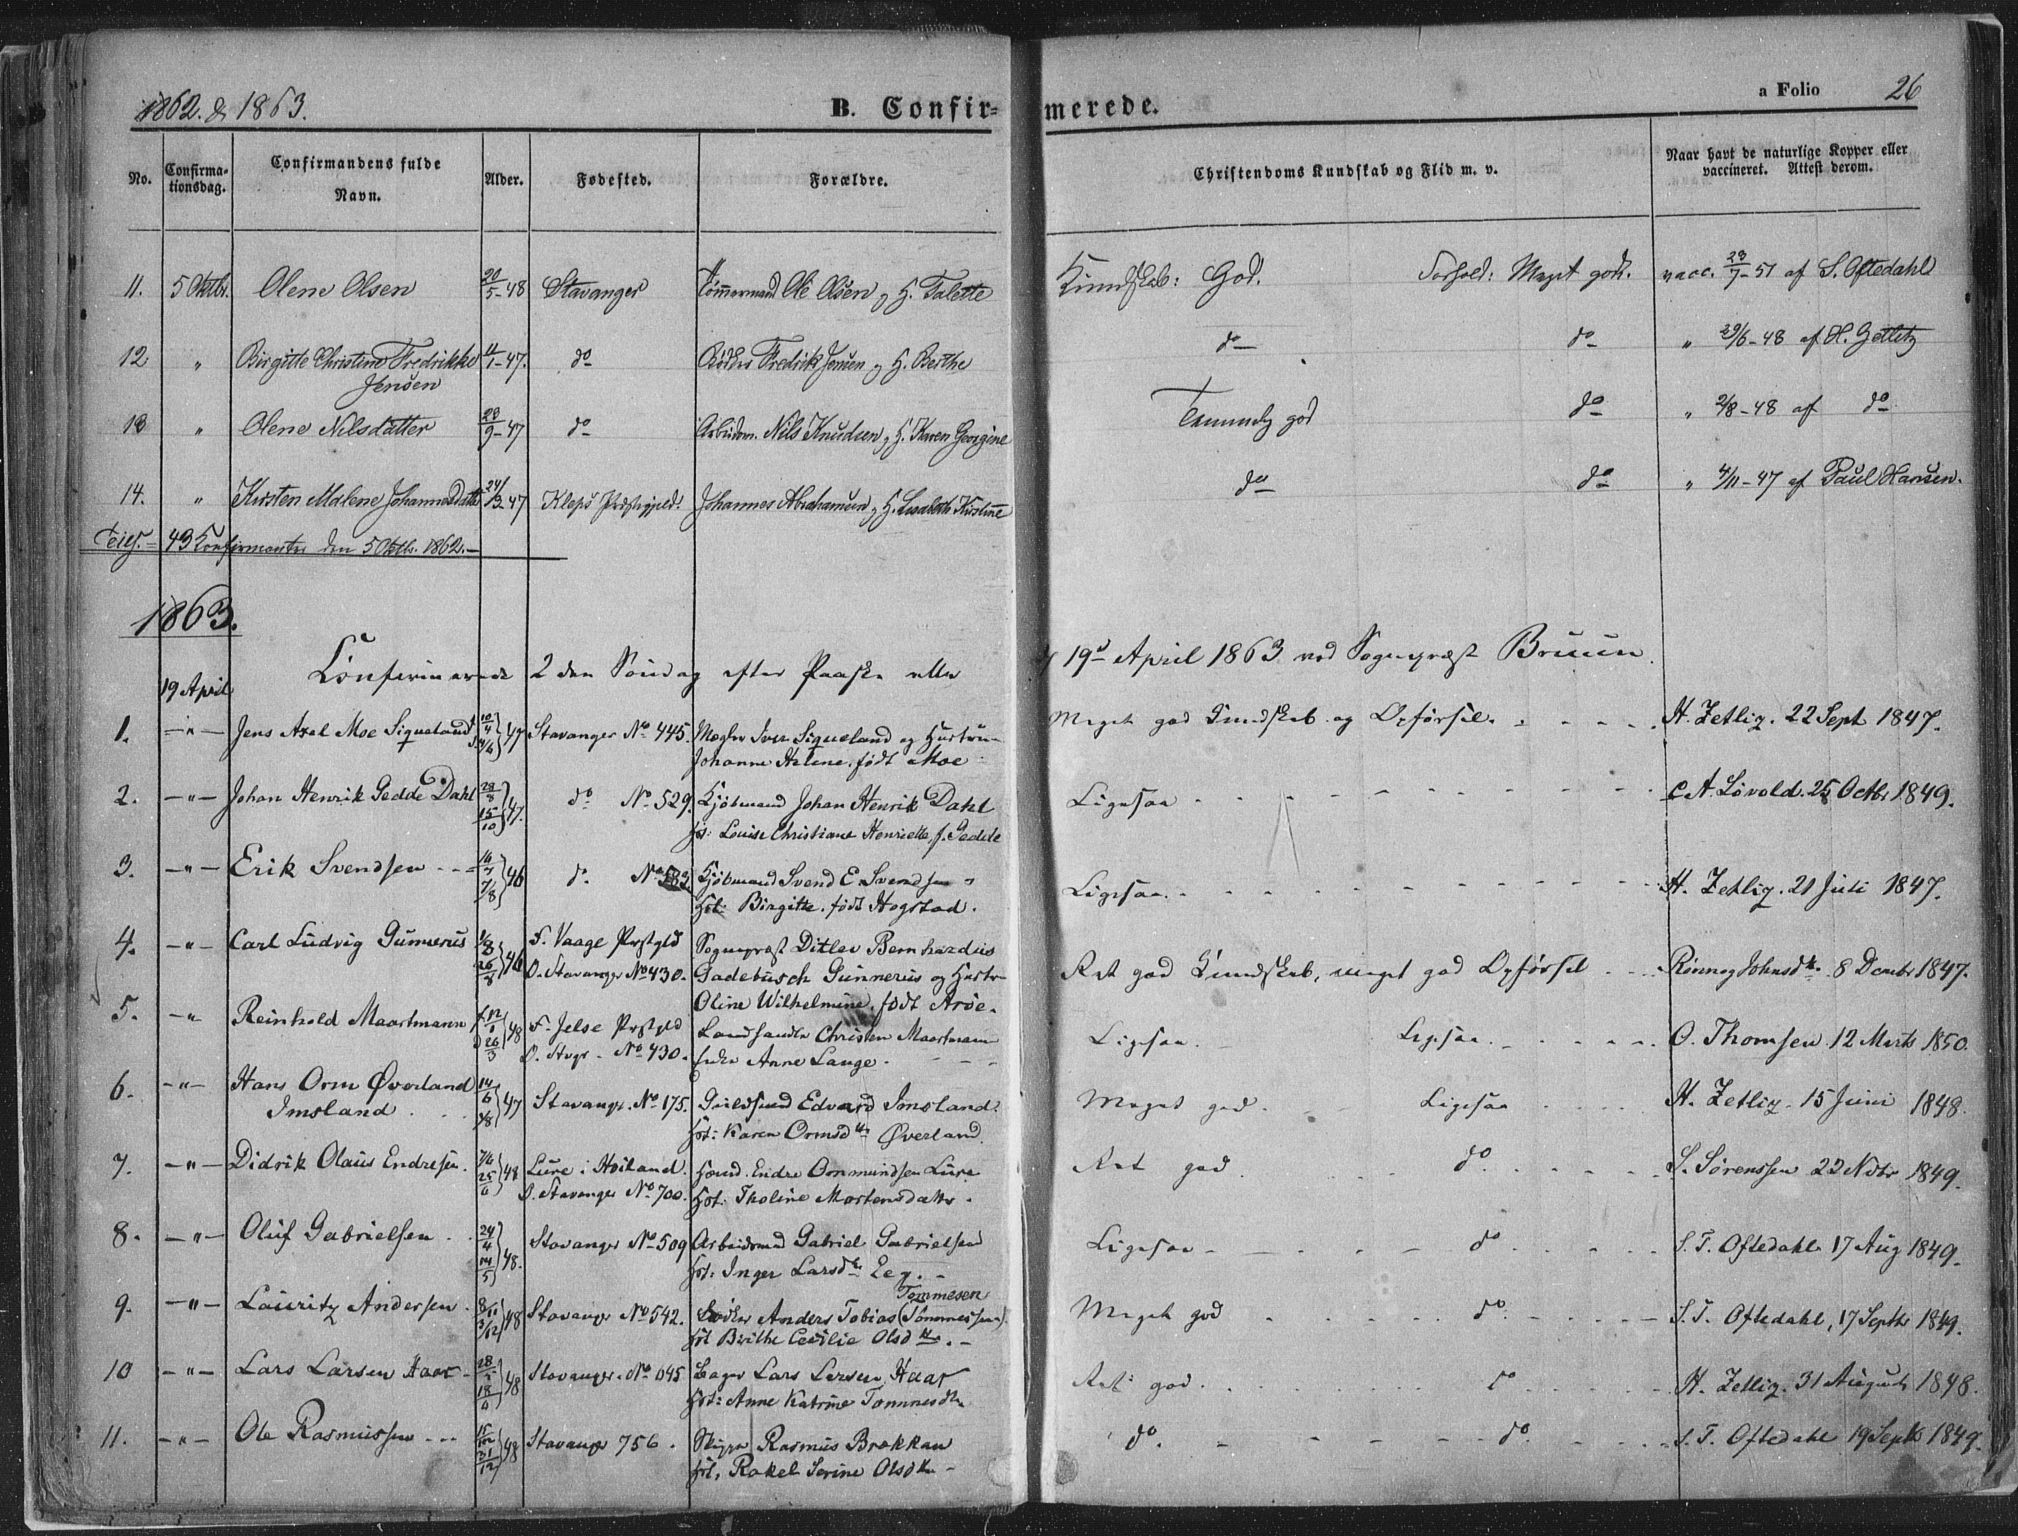 1862. & 1863.
B. Confirmerede.
a Folio 26
No.
Confirma-
tionsdag.
Confirmandens fulde
Navn.
Alder.
Fødested.
Forældre.
Christendoms Kundskab og Flid m. v.
Naar havt de naturlige Kopper eller
vaccineret. Attest derom.
11. 5 Oktbr. Olene Olsen 20/5-48 Stavanger Tømmermand Ole Olsen g H. Talette Kundskab: God. Forhold: Meget godt. vacc. 23/7-51 af S. Oftedahl
12 " Birgitte Christine Fredrikke 11/1-47. do Bødker Fredrik Jensen g H. Berthe do do " 29/6-48 af H. Zetlitz
Jensen
13 " Olene Nilsdatter 23/9-47 do Arbeidsm. Nils Knudsen g H. Karen Georgine Temmelig god do " 2/8-48 af do
14. " Kirsten Malene Johannesdatter 24/3-47 Kleps Præstegjeld. Johannes Abrahamsen g H. Lisabeth Kirstine do do " 4/11-47 af Paul Hansen.
43 Konfirmanter den 5 Oktb. 1862.
1863.
Confirmerede 2den Søndag efter Paaske eller d 19d April 1863 ved Sognepræst Bruun.
19 April
1. -"- Jens Axel Moe Siqueland 10/4 47 Stavanger No 445. Mægler Iver Siqueland og Hustru Meget god Kundskab og Opførsel. H. Zetlitz. 22 Sept 1847.
Johanne Helene, født Moe
2. -"- Johan Henrik Gedde Dahl 28/8 15/10 47. do No 529. Kjøbmand Johan Henrik Dahl Ligesaa A. Løvold. 25 Octbr 1849.
Hst: Louise Christiane Henriette, f. Gedde
3. -"- Erik Svendsen 16/7 7/8 46 do No 583. Kjøbmand Svend E. Svendsen Ligesaa. H. Zetlitz. 21 Juli 1847.
Hst: Birgitte, født Hogstad.
4. -"- Carl Ludvig Gunnerus 1/8 26/8 46 F. Vaage Prstgld Sognepræst Ditlev Bernhardus Ret god Kundskab, meget god Opførsel Rønnog Johnsdtr. 8 Decembr 1847.
O. Stavanger No 430. Gadebusch Gunnerus og Hustru
Oline Wilhelmine, født Arøe.
5. -"- Reinhold Maartmann 12/1 26/3 48 F. Jelse Prstgld Landhandler Christen Maartmann Ligesaa. Ligesaa. O. Thomsen 12 Marts 1850.
O. Stvgr - No 430. Enke Anne Lange.
6. -"- Hans Orm Øverland 14/6 47 Stavanger. No 175. Edvard Imsland. Meget god. Ligesaa H. Zetlitz. 15 Juni 1848.
Imsland Hst: Karen Ormsdtr Øverland.
7. -"- Didrik Olaus Endresen. 7/6 25/6 48 Lure i Høiland. Hsmd. Endre Ommundsen Lure Ret god do S. Sørenssen 22 Novbr 1849.
O. Stavanger No 700. Hst: Tholine Mortensdatter.
8. -"- Oluf Gabrielsen 24/4 14/5 48. Stavanger No 509 Arbeidsmd Gabriel Gabrielsen Ligesaa do S. T. Oftedahl 17 Aug 1849.
Hst: Inger Larsdtr Eeg.
9. -"- Lauritz Andersen 8/11 3/12 48 Stavanger No 542. Bødker Anders Tobias (Tønnessen) Tommesen Meget god do S. T. Oftedahl, 17 Septbr 1849.
Hst Birthe Cecilie Olsdtr.
10 -"- Lars Larsen Haar 28/5 18/6 48 Stavanger. No 645 Bager Lars Larsen Haar Ret god. do H. Zetlitz. 31 August 1848.
Hst: Anne Katrine Tommesdtr
11. -"- Ole Rasmussen 15/12 31/12 48 Stavanger 756. Skipper Rasmus Brækkan do. do S. T. Oftedahl 19 Septb 1849.
Hst, Rakel Serine Olsdtr